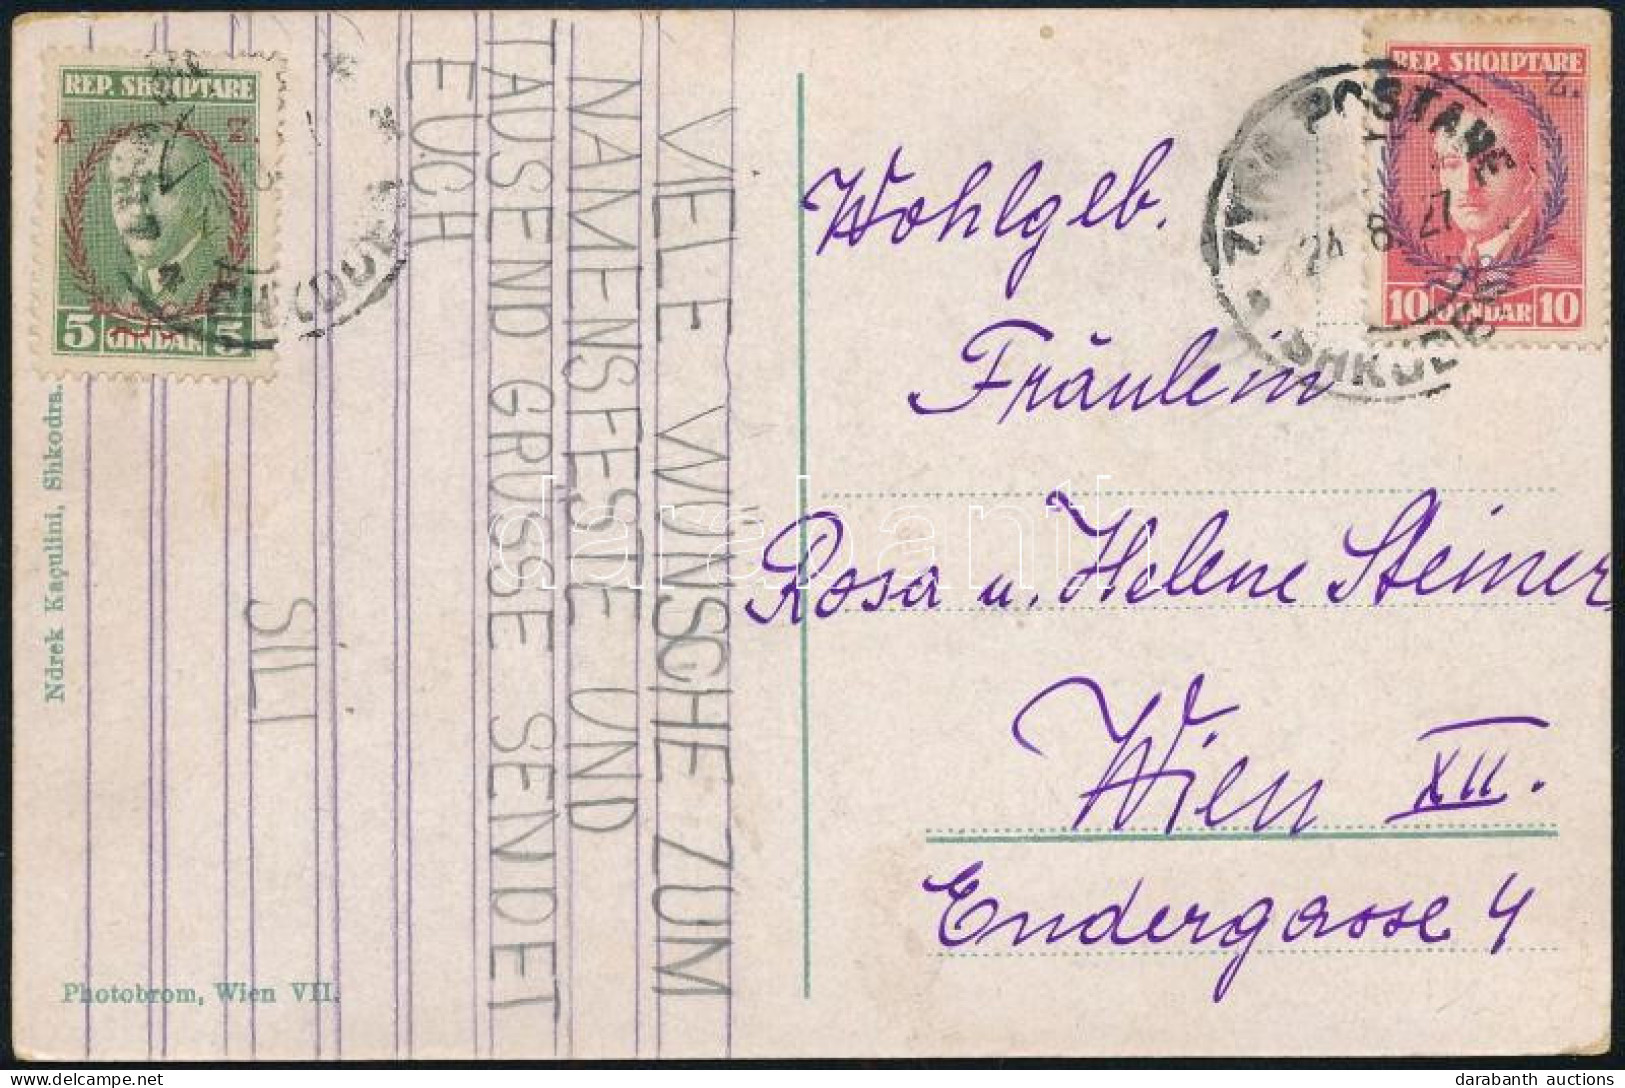 REP. SHQIPTARE
A Z.
5 QINDAR 5
VIELE WÜNSCHE ZUM
NAMENSFESTE UND
TAUSEND GRÜSSE SENDET
EUCH
SILI
Ndrek Kaçulini, Shkodra.
Photobrom, Wien VII.
REP. SHQIPTARE
Z.
10 QINDAR 10
POSTARE
24 8 27
Wohlgeb.
Fräulein
Rosa u. Helene Steiner
Wien XII.
Endergasse 4
darabanth
darabanth auctions